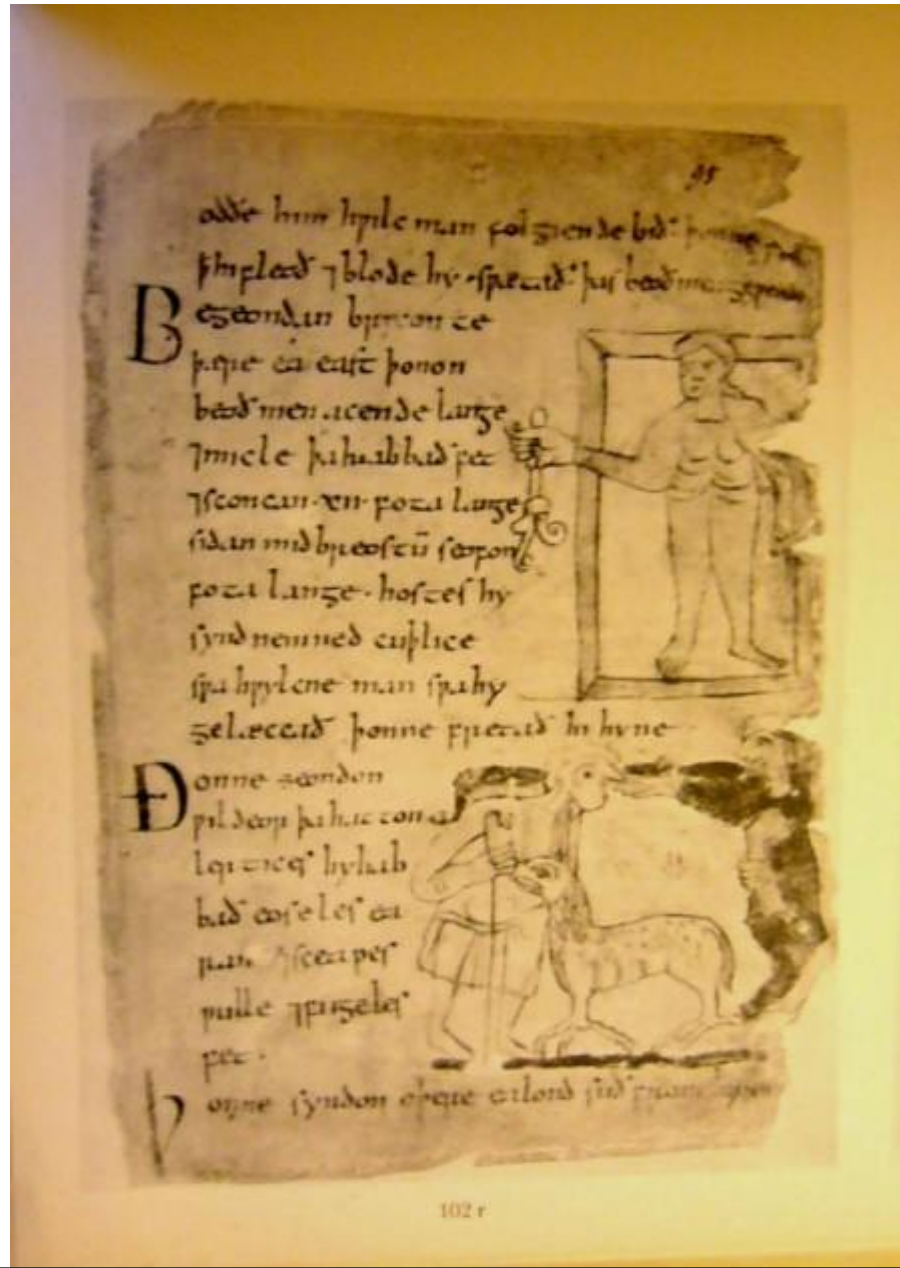 95
oððe him hƿilc man folgiende bið þonne
þ hi fleoð ⁊ blode hy sƿætað þas beoð men
Begeondan brixonte
þære ea east þonon
beoð men acende lange
⁊ micle þa habbað fet
⁊ sconcan ·xii· fota lange
sidan mid breostū seofon
fota lange · hostes hy
synd nemned cuþlice
sƿa hƿylcne man sƿa hy
gelæccað þonne fretað hi hyne
Ðonne seondon
ƿildeor þa hatton a
lertices hy hab
bað eoseles ea
ran ⁊ sceapes
ƿulle ⁊ fugeles
fet ·
Þonne syndon oþere ealond suð fram
102 r